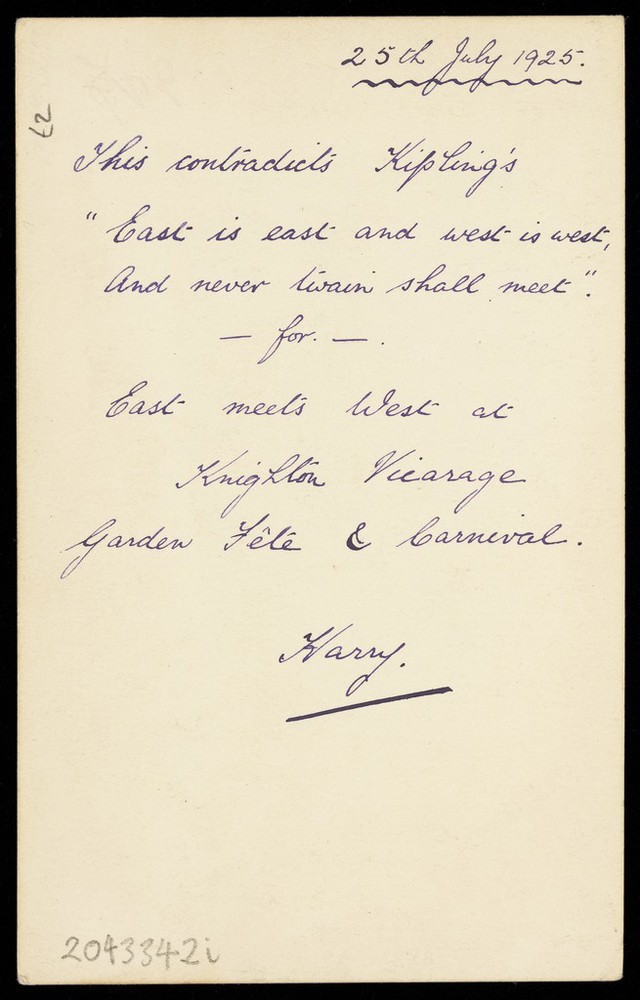 25th July 1925.
This contradicts Kipling's
" East is east and west is west,
And never twain shall meet".
— for. — .
East meets West at
Knighton Vicarage
Garden Fête & Carnival.
Harry.
2043342i